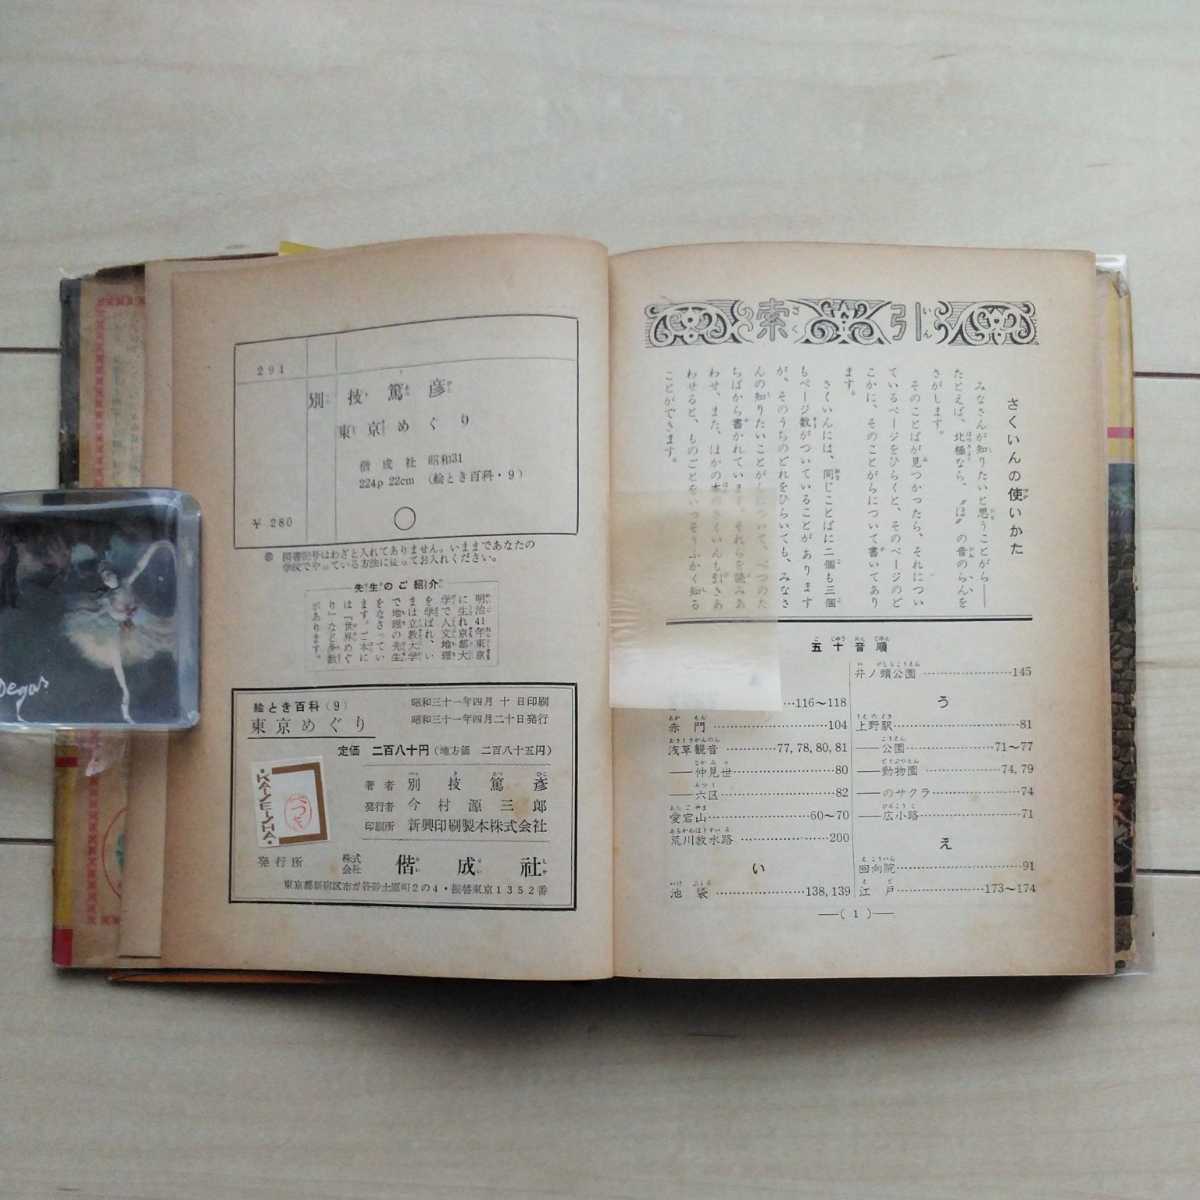 291
別技篤彦
東京めぐり
偕成社 昭和31
224p 22cm (絵とき百科・9)
¥ 280
図書記号はわざと入れてありません。いままであなたの
学校でやっている方法に従ってお入れください。
先生のご紹介
明治41年東京
に生れ、京都大
学で人文地理
を学ばれ、い
まは立教大学
で地理の先生
をなさってい
ます。ご本に
は「世界めぐ
り」など多数
があります。
絵とき百科(9)
東京めぐり
昭和三十一年四月 十 日印刷
昭和三十一年四月二十日発行
定価 二百八十円(地方価 二百八十五円)
著者 別技篤彦
発行者 今村源三郎
印刷所 新興印刷製本株式会社
発行所 株式会社 偕成社
東京都新宿区市が谷砂土原町2の4・振替東京1352番
KAISEISHA
索引
さくいんの使いかた
みなさんが知りたいと思うことがら――
たとえば、北極なら、〝ほ〟の音のらんを
さがします。
そのことばが見つかったら、それについ
ているページをひらくと、そのページのど
こかに、そのことがらについて書いてあり
ます。
さくいんには、同じことばに二個も三個
もページ数がついていることがあります
が、そのうちのどれをひらいても、みなさ
んの知りたいことがらについて、べつのた
ちばから書かれています。それらを読みあ
わせ、また、ほかの本のさくいんも引きあ
わせると、ものごとをいっそうふかく知る
ことができます。
五十音順
116〜118
赤門
浅草観音 77, 78, 80, 81
――仲見世 80
――六区 82
愛宕山 60〜70
荒川放水路 200
い
池袋 138, 139
井ノ頭公園 145
う
上野駅 81
――公園 71〜77
――動物園 74, 79
――のサクラ 74
――広小路 71
え
回向院 91
江戸 173〜174
―( 1 )―
Degas